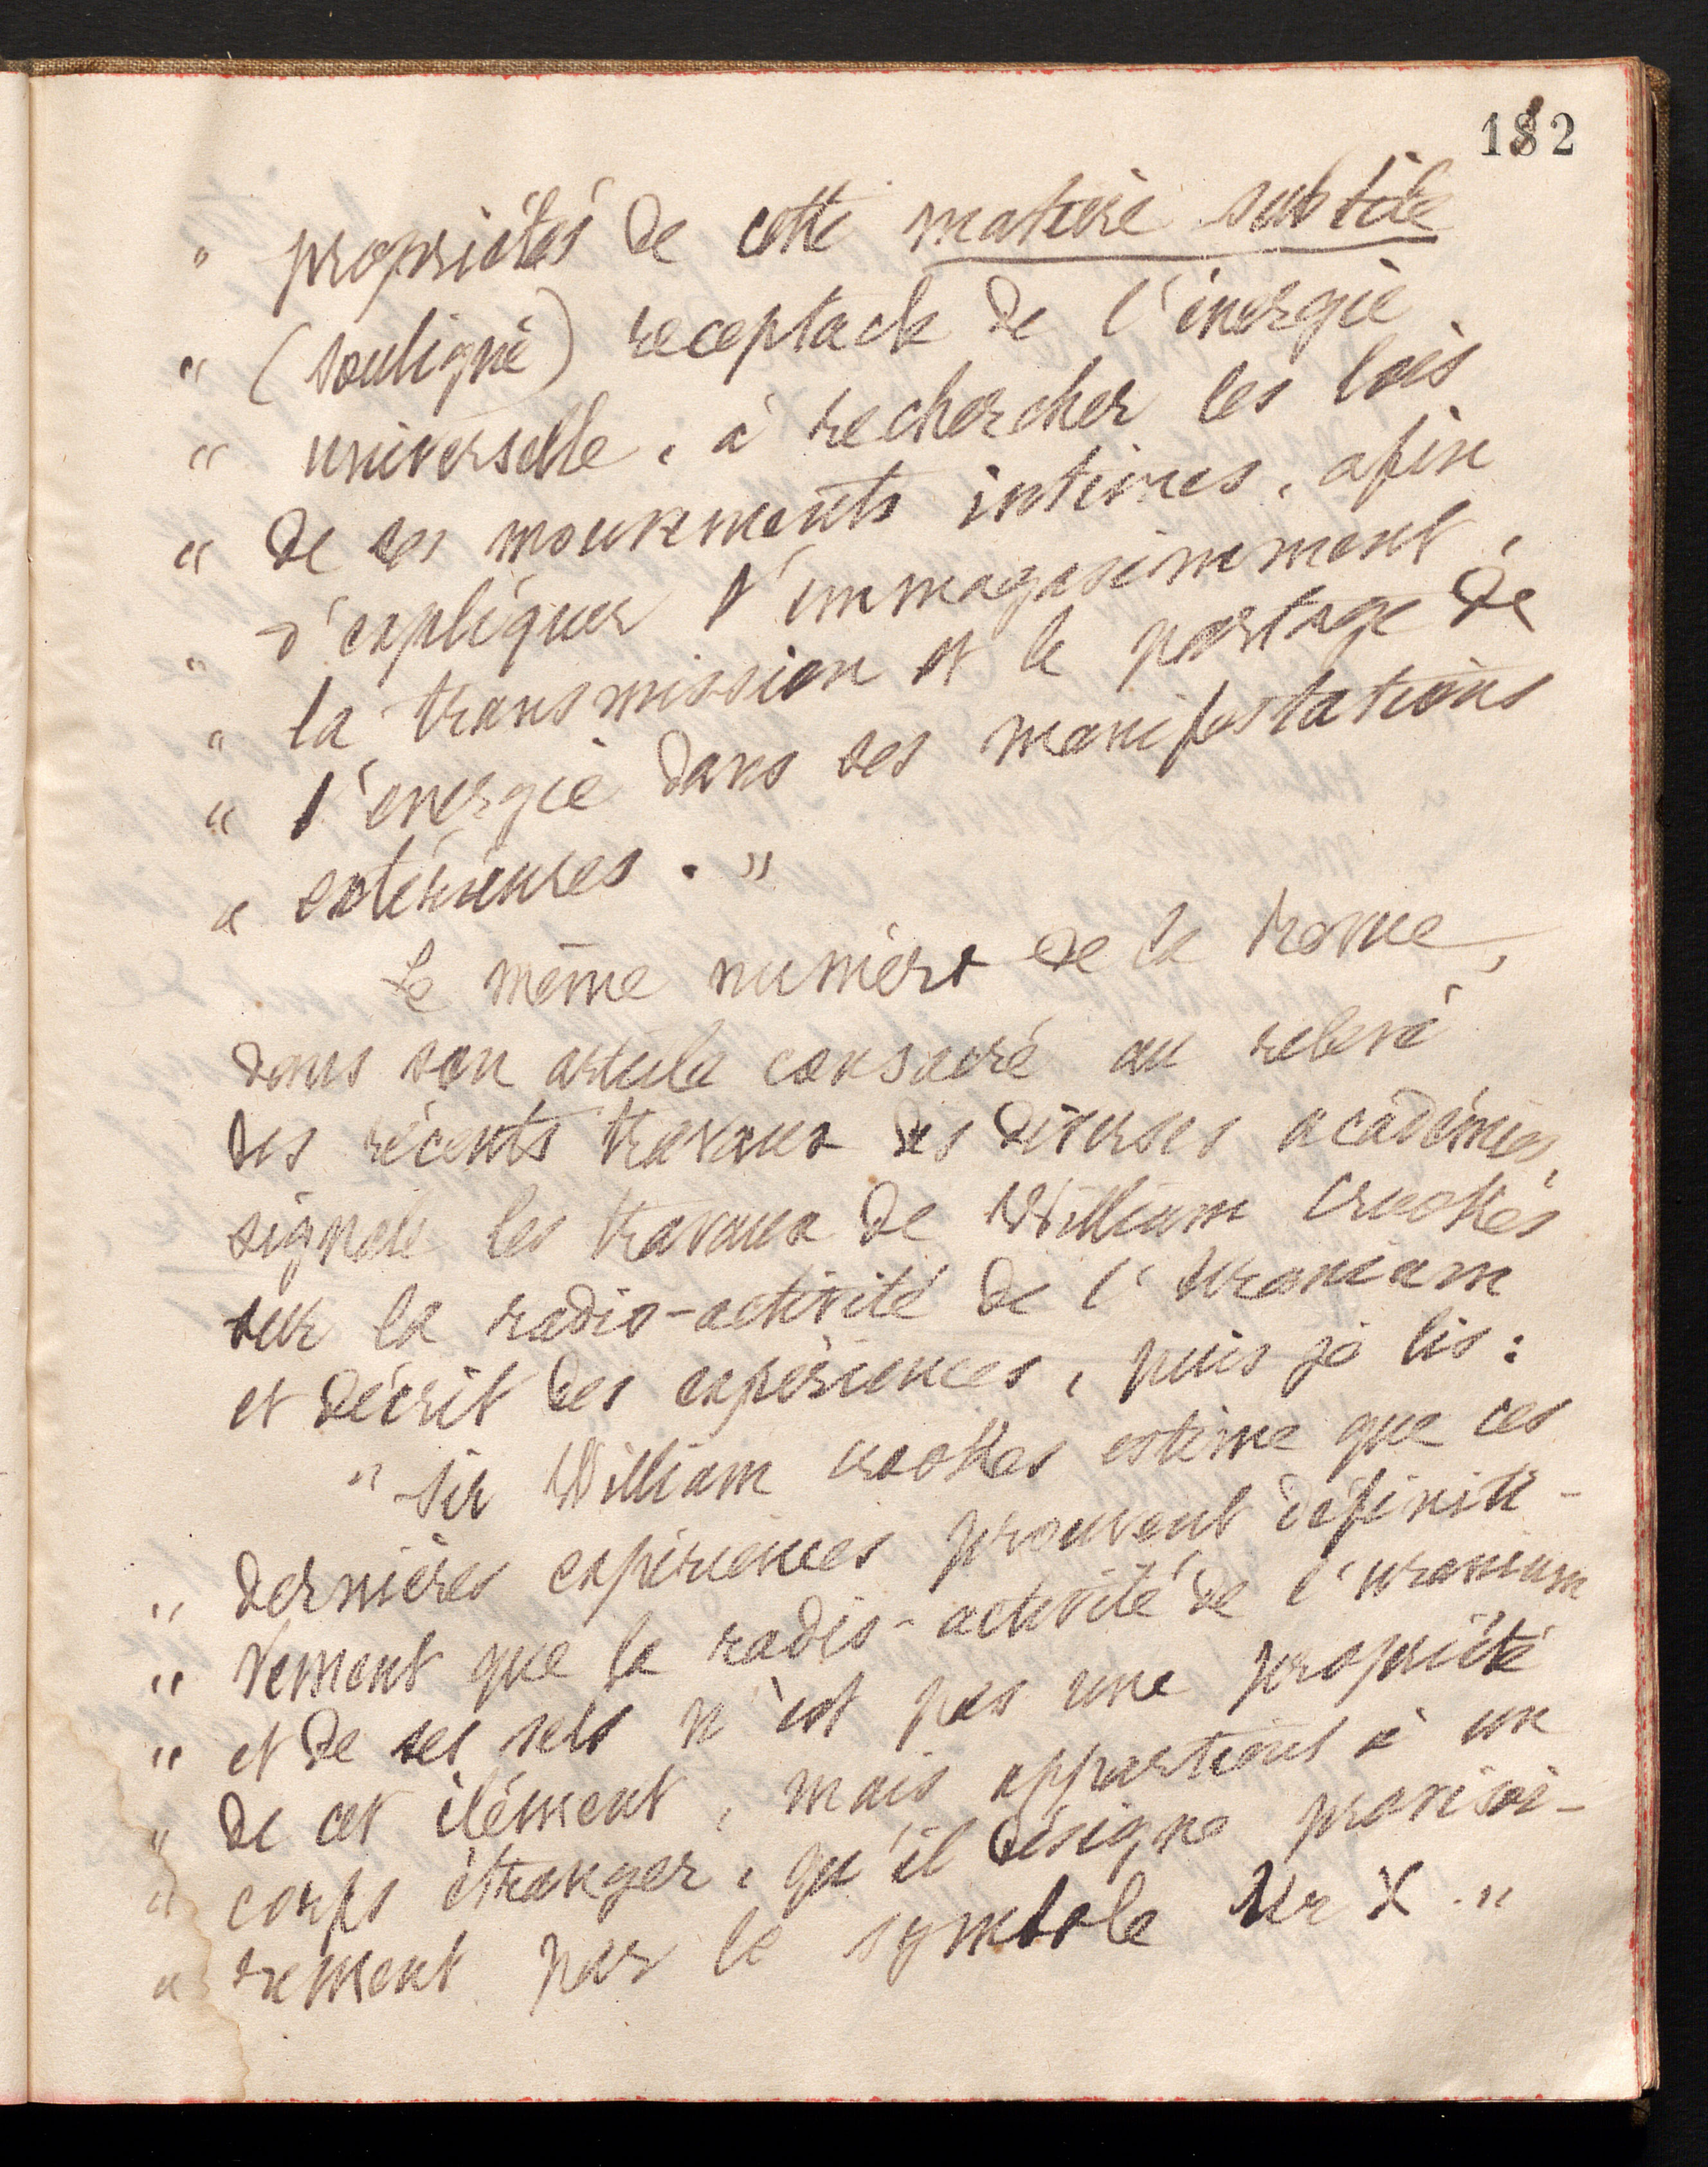 182
" propriétés de cette matière subtile
" (souligné) receptacle de l'énergie
" universelle, à rechercher les lois
" de ses mouvements intimes, afin
" d'expliquer l'emmagasinement,
" la transmission et le partage de
" l'énergie dans ses manifestations
" extérieures. "
Le même numéro de la Revue,
dans son article consacré au relevé
des récents travaux des diverses académies,
signale les travaux de William Crookes
sur la radio-activité de l'uranium
et décrit des expériences, puis je lis :
" Sir William Crookes estime que ces
" dernières expériences prouvent définiti-
" vement que la radio-activité de l'uranium
" et de ses sels n'est pas une propriété
" de cet élément, mais appartient à un
" corps étranger, qu'il désigne provisoi-
" rement par le symbole Ur X. "